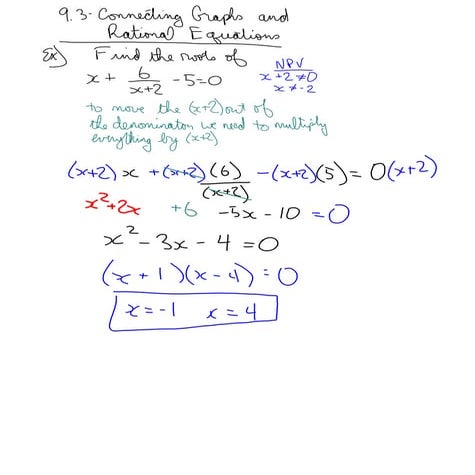 9.3-Connecting Graphs and
Rational Equations
Ex) Find the roots of
x + 6/(x+2) - 5=0
NPV
x+2≠0
x≠-2
to move the (x+2) out of
the denominator, we need to multiply
everything by (x+2)
(x+2)x + (x+2)(6)/(x+2) - (x+2)(5) = 0(x+2)
x²+2x +6 -5x - 10 = 0
x² - 3x - 4 = 0
(x + 1)(x - 4) = 0
x = -1 x = 4